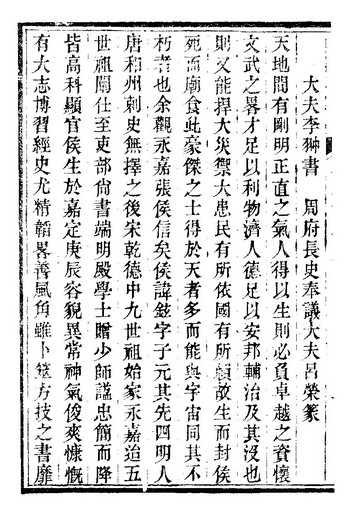 大夫李翀書　周府長史奉議大夫呂榮篆
天地間有剛明正直之氣人得以生則必負卓越之資懷
文武之畧才足以利物濟人德足以安邦輔治及其沒也
則又能捍大災禦大患民有所依國有所頼故生而封侯
死而廟食此豪傑之士得於天者多而能與宇宙同其不
朽者也余觀永嘉張侯信矣侯諱鉉字子元其先四明人
唐和州刺史無擇之後宋乾德中九世祖始家永嘉迨五
世祖闡仕至吏部尙書端明殿學士贈少師謚忠簡而降
皆高科顯官侯生於嘉定庚辰容貌異常神氣俊爽慷慨
有大志博習經史尤精韜畧善風角雖卜筮方技之書靡